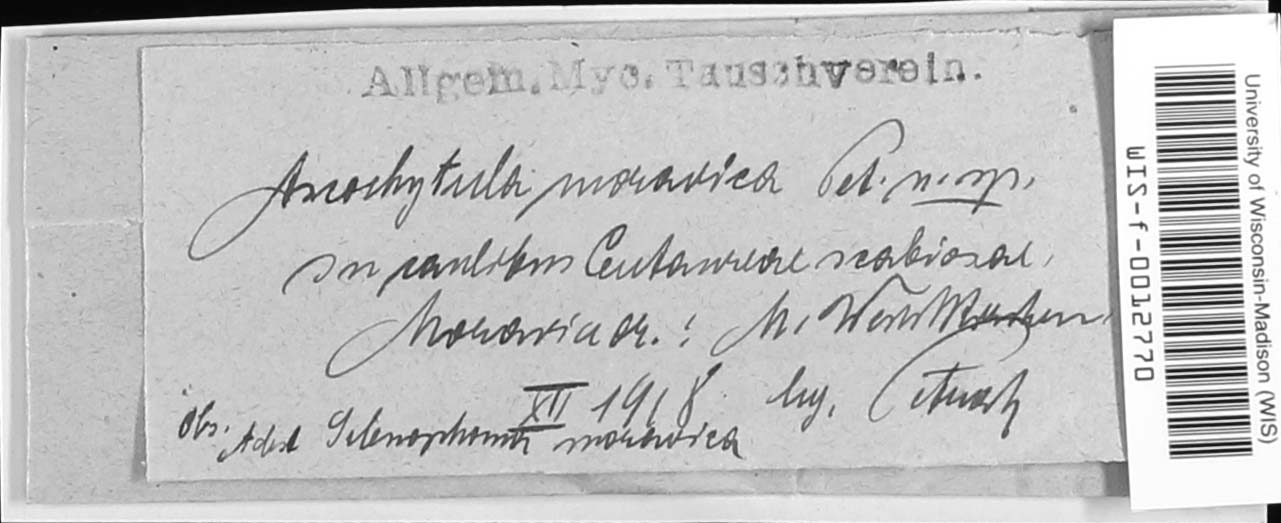 Allgem. Myc. Tauschverein.
Ascochytula moravica Pet. n. sp.
in caulibus Centaureae scabiosae,
Moravia or.: M.
XII 1918. leg. Petrak
Obs. Adest Selenophoma moravica
University of Wisconsin-Madison (WIS)
WIS-f-0012770